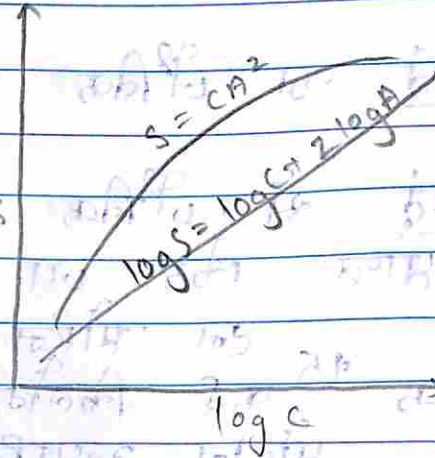 S = CA²
log S = log C + 2 log A
log C